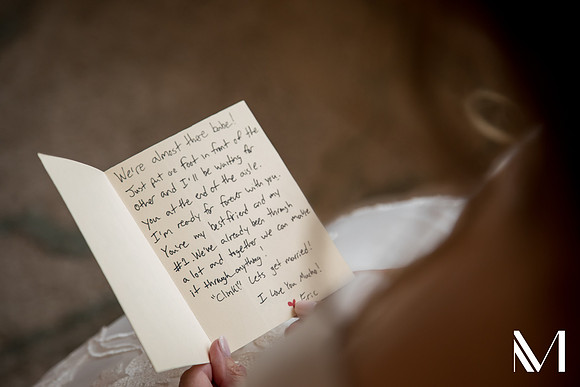 We're almost there babe!
Just put one foot in front of the
other and I'll be waiting for
you at the end of the aisle.
I'm ready for forever with you.
You're my best friend and my
#1. We've already been through
a lot and together, we can make
it through anything.
"Clink!" Lets get married!
I Love You Mucho!
Eric
M